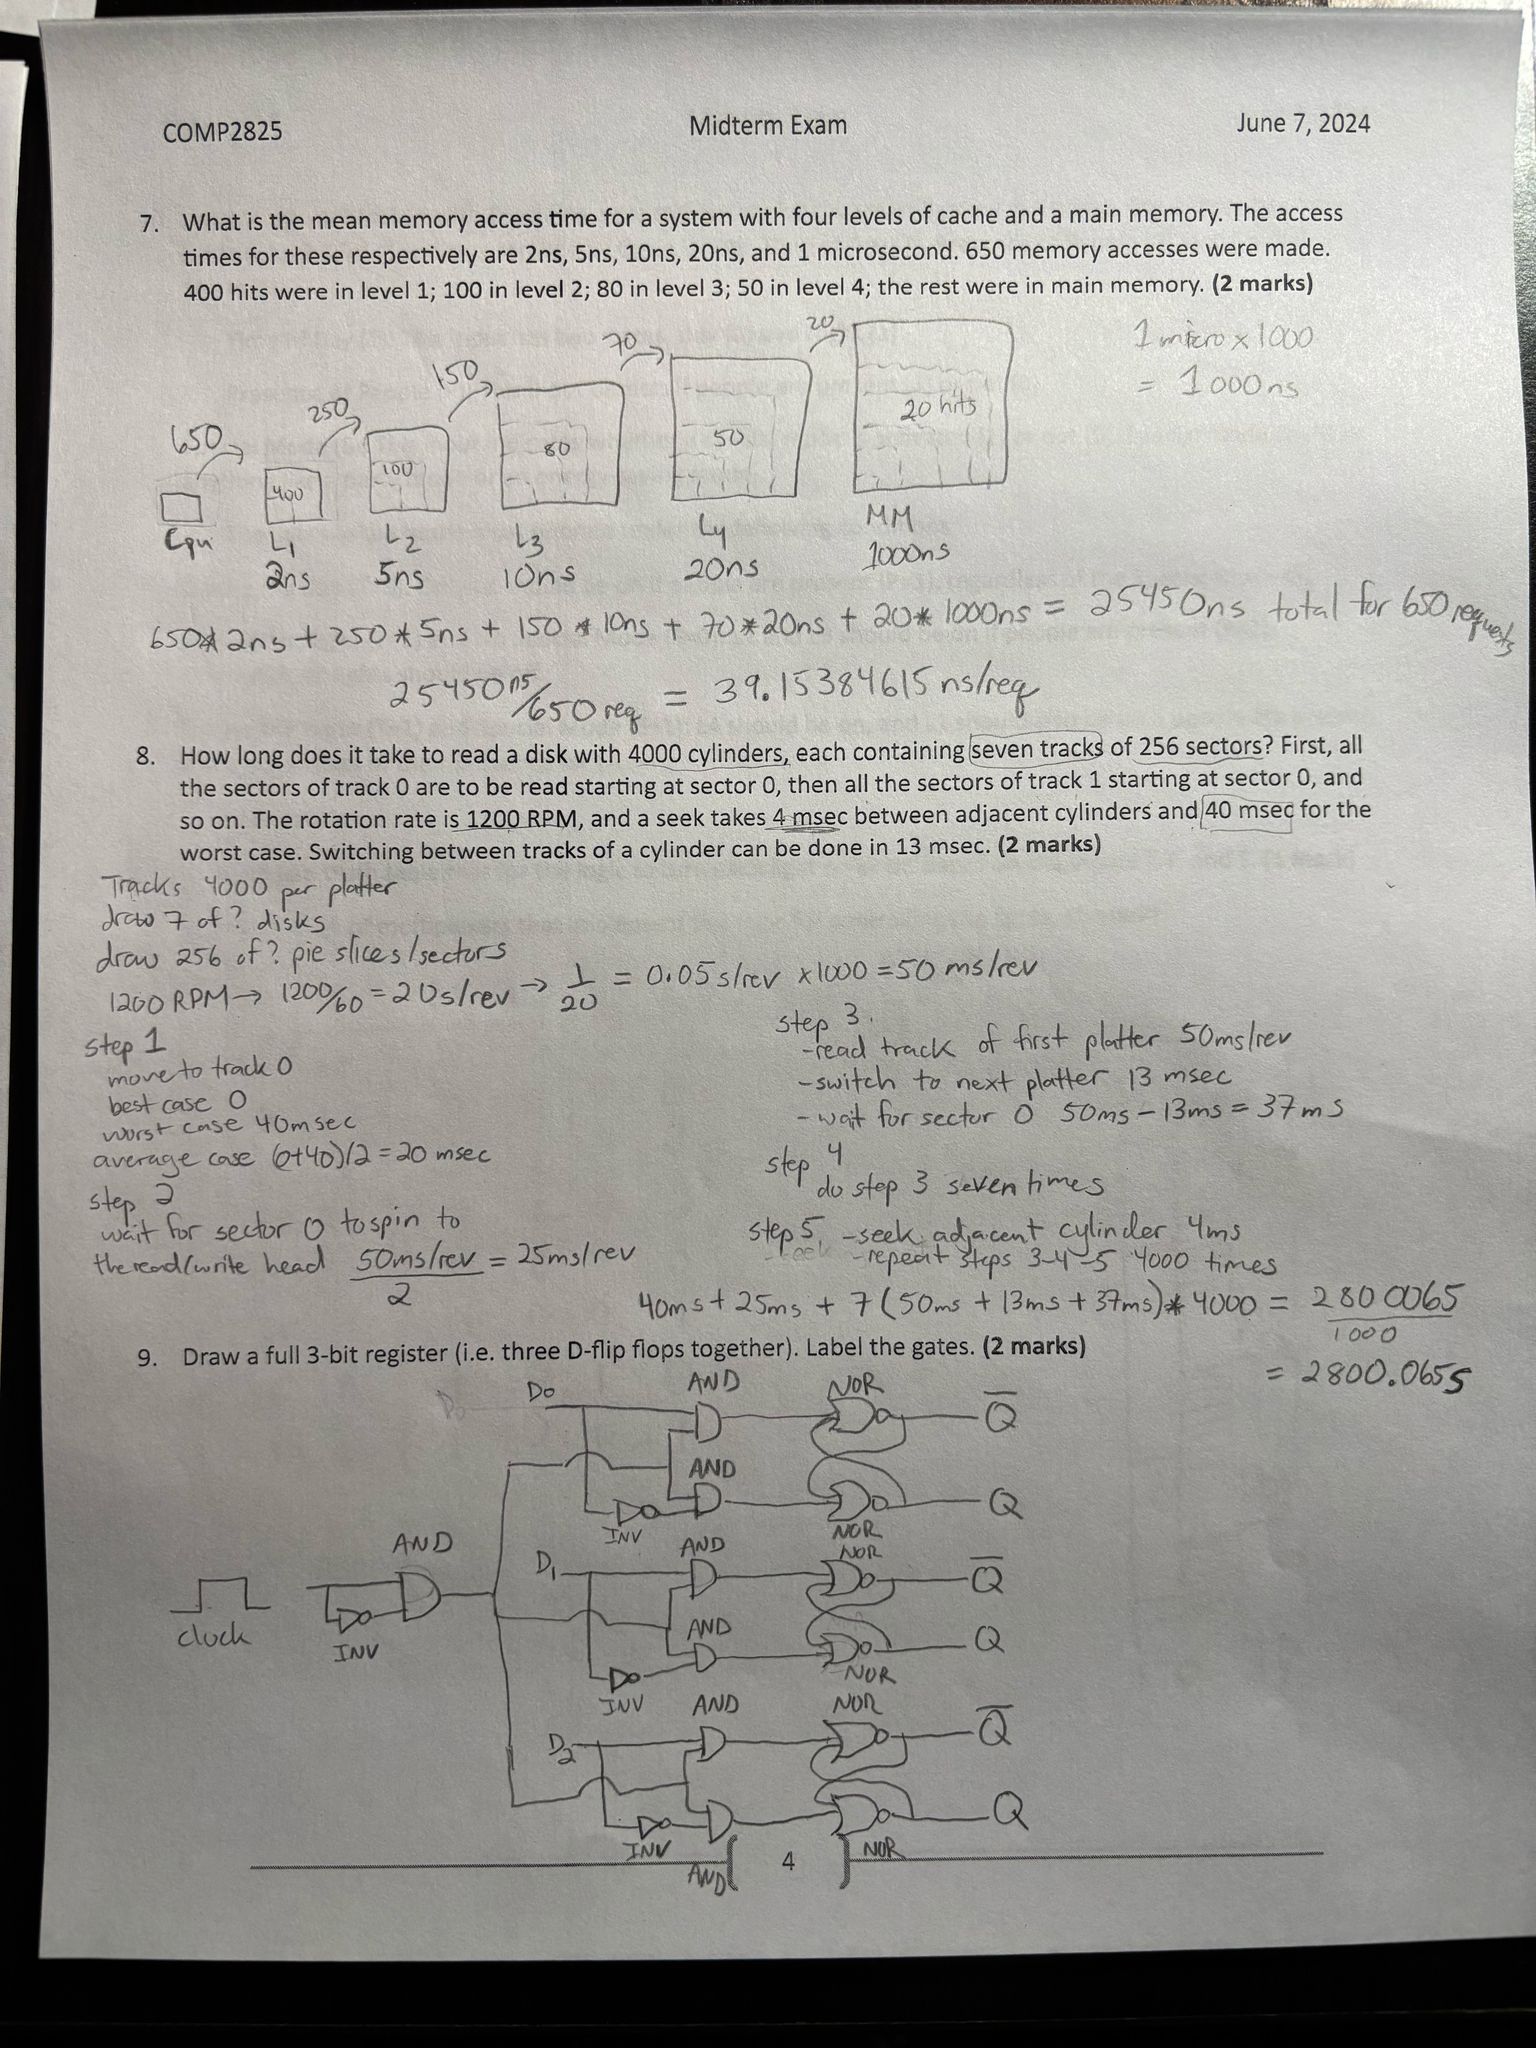 COMP2825 Midterm Exam June 7, 2024
7. What is the mean memory access time for a system with four levels of cache and a main memory. The access
times for these respectively are 2ns, 5ns, 10ns, 20ns, and 1 microsecond. 650 memory accesses were made.
400 hits were in level 1; 100 in level 2; 80 in level 3; 50 in level 4; the rest were in main memory. (2 marks)
1 micro x 1000
= 1000ns
650 250 150 70 20
400 100 80 50 20 hits
Cpu L1 L2 L3 L4 MM
2ns 5ns 10ns 20ns 1000ns
650*2ns + 250*5ns + 150*10ns + 70*20ns + 20*1000ns = 25450ns total for 650 requests
25450ns/650 req = 39.15384615 ns/req
8. How long does it take to read a disk with 4000 cylinders, each containing seven tracks of 256 sectors? First, all
the sectors of track 0 are to be read starting at sector 0, then all the sectors of track 1 starting at sector 0, and
so on. The rotation rate is 1200 RPM, and a seek takes 4 msec between adjacent cylinders and 40 msec for the
worst case. Switching between tracks of a cylinder can be done in 13 msec. (2 marks)
Tracks 4000 per platter
draw 7 of ? disks
draw 256 of ? pie slices/sectors
1200 RPM → 1200/60 = 20s/rev → 1/20 = 0.05s/rev x1000 = 50 ms/rev
step 1
move to track 0
best case 0
worst case 40msec
average case (0+40)/2 = 20 msec
step 2
wait for sector 0 to spin to
the read/write head 50ms/rev / 2 = 25ms/rev
step 3.
-read track of first platter 50ms/rev
-switch to next platter 13 msec
-wait for sector 0 50ms-13ms = 37ms
step 4
do step 3 seven times
step 5. -seek adjacent cylinder 4ms
-repeat steps 3-4-5 4000 times
40ms + 25ms + 7(50ms + 13ms + 37ms)*4000 = 2800065
1000
= 2800.065s
9. Draw a full 3-bit register (i.e. three D-flip flops together). Label the gates. (2 marks)
D0 AND NOR Q̅
AND Q
INV NOR
AND
D1 AND NOR Q̅
clock
INV
AND Q
INV NOR
D2 AND NOR Q̅
Q
INV NOR
AND
4